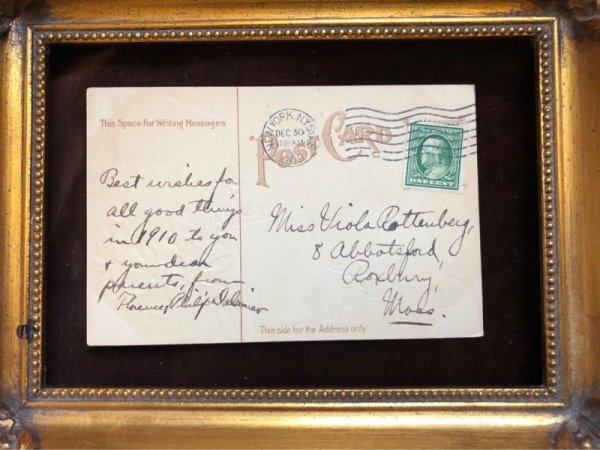 This Space For Writing Messages
POST CARD
NEW YORK, N.Y. STA
DEC 30
1909
ONE CENT
Best wishes for
all good things
in 1910 to you
& your dear
parents, from
Florence, Philip
Miss Viola Rottenberg,
8 Abbotsford,
Roxbury,
Mass.
This side for the Address only